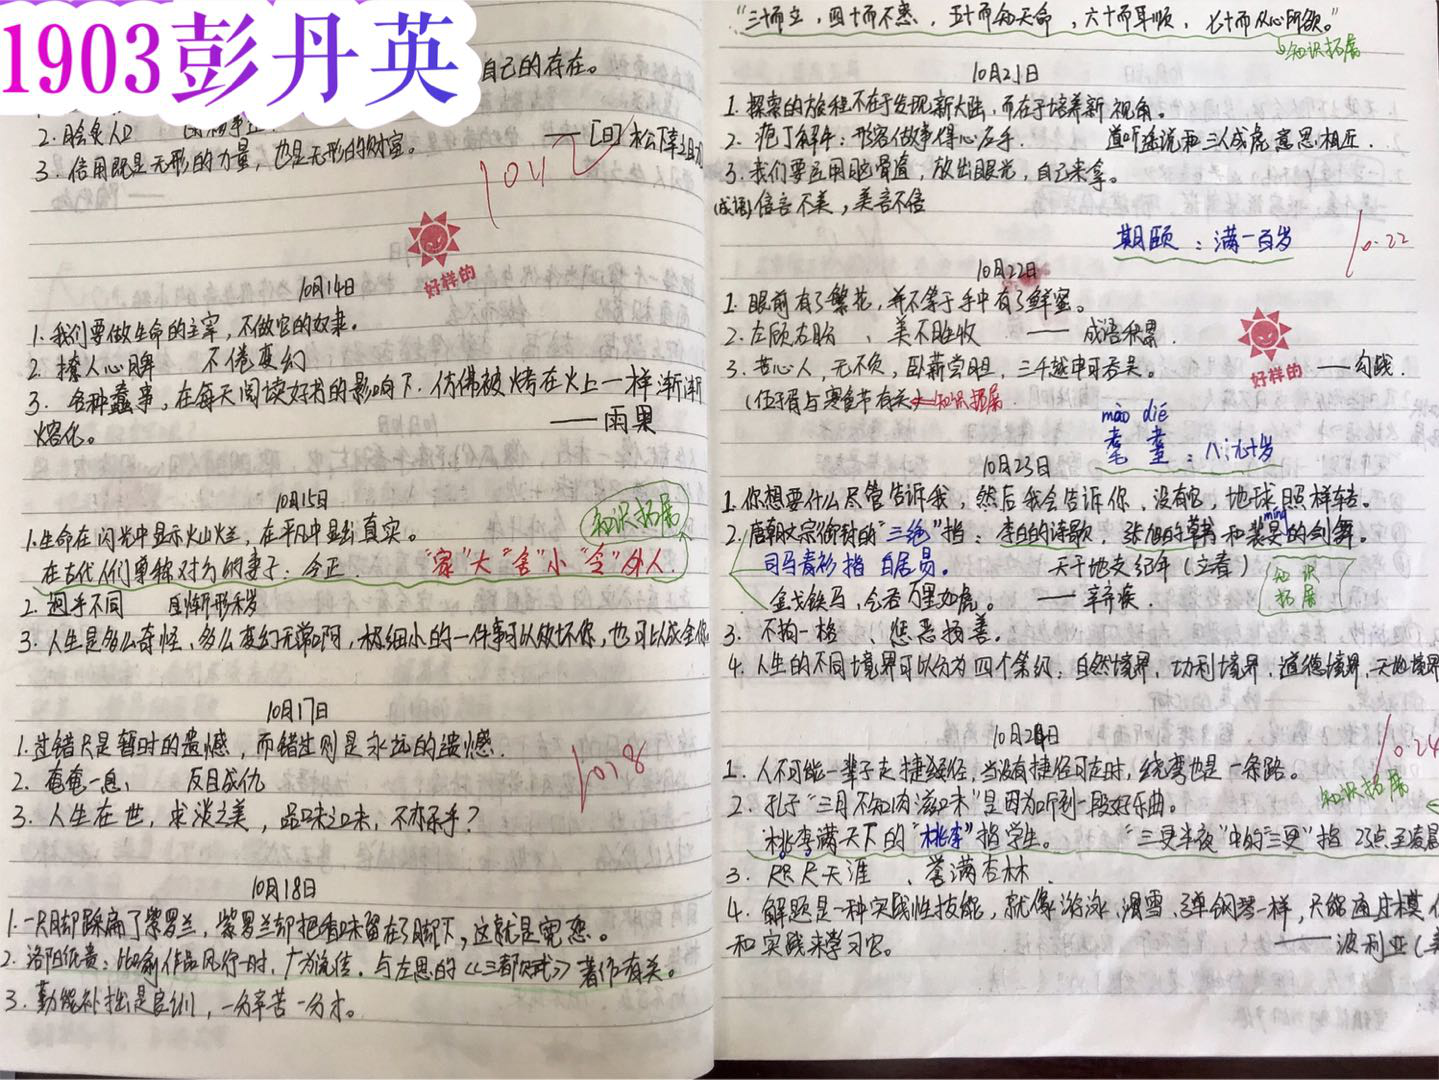 1903彭丹英
自己的存在。
2. 脍炙人口
3. 信用既是无形的力量，也是无形的财富。
——[日]松下幸之助
好样的
10月14日
1. 我们要做生命的主宰，不做它的奴隶。
2. 撩人心脾 不倦变幻
3. 各种蠢事，在每天阅读好书的影响下，仿佛被烤在火上一样渐渐
熔化。 ——雨果
10月15日
1. 生命在闪光中显示灿烂，在平凡中显出真实。
知识拓展
在古代人们尊称对方的妻子：令正. “家”大“舍”小“令”外人.
2. 迥乎不同 自惭形秽
3. 人生是多么奇怪、多么变幻无常啊，极细小的一件事可以败坏你，也可以成全你
10月17日
1. 过错只是暂时的遗憾，而错过则是永远的遗憾.
2. 奄奄一息， 反目成仇
10.18
3. 人生在世，求淡之美，品味之味，不亦乐乎？
10月18日
1. 一只脚踩痛了紫罗兰，紫罗兰却把香味留在了脚下，这就是宽恕。
2. 洛阳纸贵：比喻作品风行一时，广为流传，与左思的《三都赋》著作有关。
3. 勤能补拙是良训，一分辛苦一分才。
“三十而立，四十而不惑，五十而知天命，六十而耳顺，七十而从心所欲。”
知识拓展
10月21日
1. 探索的旅程不在于发现新大陆，而在于培养新视角。
2. 疱丁解牛：形容做事得心应手. 道听途说和三人成虎意思相近.
3. 我们要运用脑髓，放出眼光，自己来拿。
(成语)信言不美，美言不信
期颐：满一百岁
10.22
10月22日
1. 眼前有了繁花，并不等于手中有了鲜蜜。
2. 左顾右盼、美不胜收 —— 成语积累.
3. 苦心人，无不负，卧薪尝胆，三千越甲可吞吴。 ——勾践.
好样的
(伍子胥与寒食节有关)←知识拓展
mào dié
耄耋：八、九十岁
10月23日
1. 你想要什么尽管告诉我，然后我会告诉你，没有它，地球照样转。
mín
2. 唐朝文宗御封的“三绝”指：李白的诗歌，张旭的草书和裴旻的剑舞。
司马青衫指白居易. 天干地支纪年(立春)
知识拓展
金戈铁马，气吞万里如虎。 ——辛弃疾.
3. 不拘一格、惩恶扬善。
4. 人生的不同境界可以分为四个等级：自然境界，功利境界，道德境界，天地境界
10月24日
10.24
1. 人不可能一辈子走捷径，当没有捷径可走时，绕弯也是一条路。
知识拓展
2. 孔子“三月不知肉滋味”是因为听到一段好乐曲。
“桃李满天下的“桃李”指学生。 “三更半夜”中的“三更”指23点至凌晨
3. 咫尺天涯、誉满杏林.
4. 解题是一种实践性技能，就像游泳、滑雪、弹钢琴一样，只能通过模仿
和实践来学习它。 ——波利亚(美